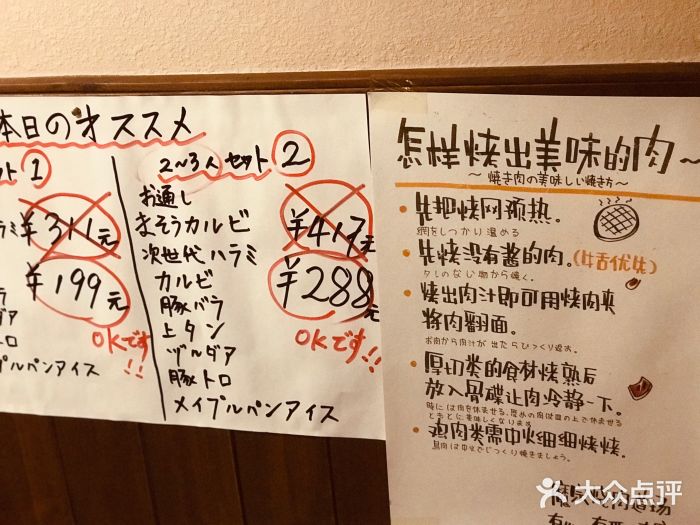 本日のオススメ
ット 1
¥311元
¥199元
OKです!!
プルパンアイス
2~3人 セット 2
お通し
まそうカルビ
次世代ハラミ
カルビ
豚バラ
上タン
ヅルダア
豚トロ
メイプルパンアイス
¥417元
¥288元
OKです!!
怎样烤出美味的肉~
~ 焼き肉の美味しい焼き方~
·先把烤网预热。
網をしっかり温める
·先烤没有酱的肉。(牛舌优先)
タレのない物から焼く。
·烤出肉汁即可用烤肉夹
将肉翻面。
お肉から肉汁が出たらひっくり返す。
·厚切类的食材烤熟后
放入骨碟让肉冷静一下。
時には肉を休ませる。厚めの肉は皿の上で休ませる
·鸡肉类需中火细细烤烤。
鶏肉は中火でじっくり焼きましょう。
大众点评